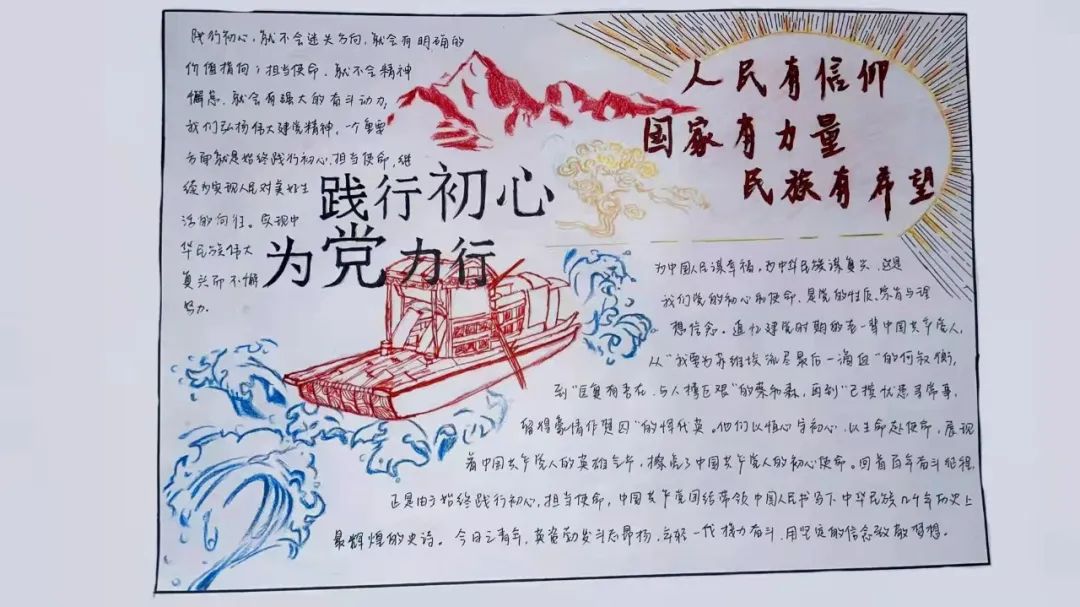 践行初心，就不会迷失方向，就会有明确的
价值指向；担当使命，就不会精神
懈怠，就会有强大的奋斗动力，
我们弘扬伟大建党精神，一个重要
方面就是始终践行初心、担当使命，继
续为实现人民对美好生
活的向往。实现中
华民族伟大
复兴而不懈
努力.
践行初心
为党力行
人民有信仰
国家有力量
民族有希望
为中国人民谋幸福，为中华民族谋复兴，这是
我们党的初心和使命，是党的性质、宗旨与理
想信念。追忆建党时期的老一辈中国共产党人，
从“我要为苏维埃流尽最后一滴血”的何叔衡，
到“匡复有吾在，与人撑巨艰”的蔡和森，再到“已摈忧患寻常事，
留得豪情作楚囚”的恽代英。他们以恒心守初心，以生命赴使命，展现
着中国共产党人的英雄气，擦亮了中国共产党人的初心使命。回首百年奋斗征程，
正是由于始终践行初心、担当使命，中国共产党团结带领中国人民书写下中华民族几千年历史上
最辉煌的史诗。今日之青年，英姿勃发斗志昂扬，年轻一代接力奋斗，用坚定的信念致敬梦想。